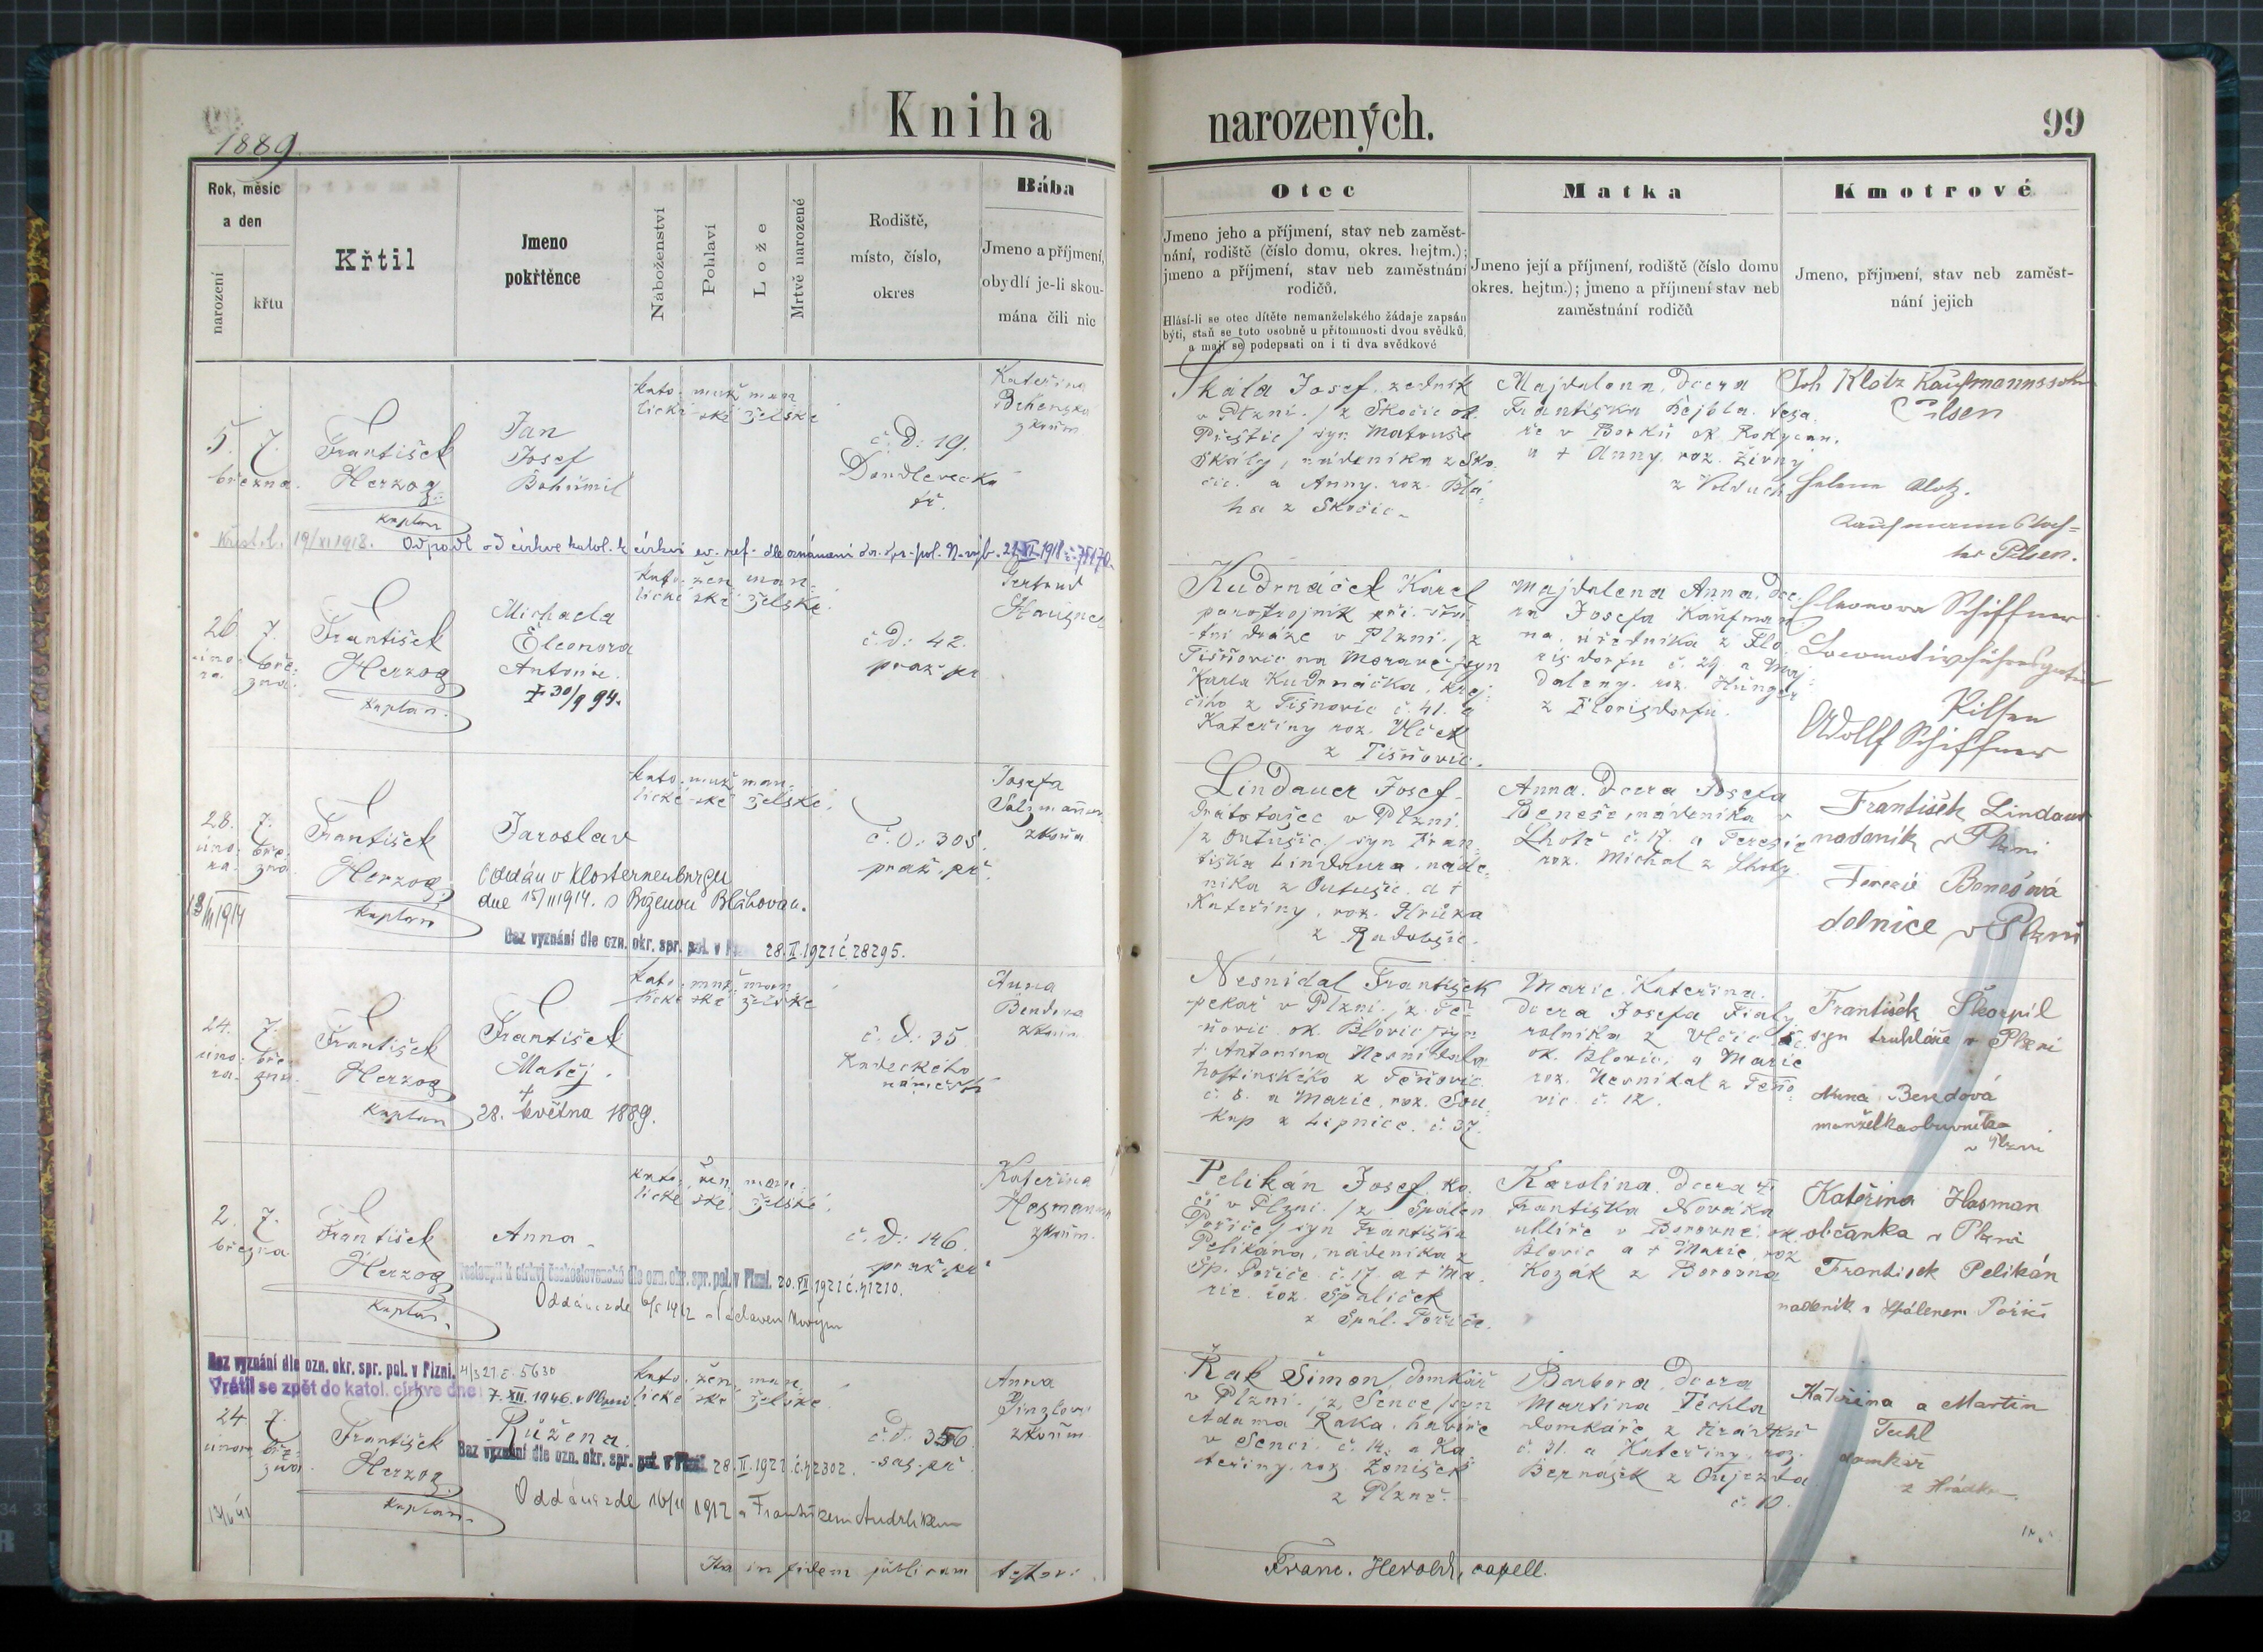 Kniha narozených.
99
1889
Rok, měsíc
a den
narození
křtu
Křtil
Jmeno
pokřtěnce
Náboženství
Pohlaví
Lože
Mrtvě narozené
Rodiště,
místo, číslo,
okres
Bába
Jmeno a příjmení,
obydlí je-li skou-
mána čili nic
Otec
Jmeno jeho a příjmení, stav neb zaměst-
nání, rodiště (číslo domu, okres. hejtm.);
jmeno a příjmení, stav neb zaměstnání
rodičů.
Hlásí-li se otec dítěte nemanželského žádaje zapsán
býti, staň se toto osobně u přítomnosti dvou svědků,
a mají se podepsati on i ti dva svědkové
Matka
Jmeno její a příjmení, rodiště (číslo domu
okres. hejtm.); jmeno a příjmení stav neb
zaměstnání rodičů
Kmotrové
Jmeno, příjmení, stav neb zaměst-
nání jejich
5. 7.
března
František
Herzog
kaplan
Jan
Josef
Bohumil
kato- muž man
lické ské želské
č. d: 19.
Doudlevecká
tř.
Kateřina
zkouš.
Skála Josef, zedník
v Plzni / z Skočic ok.
Přeštic / syn Matouše
Skály, nádeníka z Sko-
čic. a Anny. roz. Blá-
ha z Skočic
Majdalena, dcera
Františka Bejbla. tesa-
ře v Borku ok. Rokycan.
a + Anny. roz. Živný
z Volduch
Joh Klotz Kaufmannssohn
Pilsen
Helene Klotz.
Kaufmann Toch-
ter Pilsen.
19/XI 1918. Odpadl od církve katol. k církvi ev. ref. dle oznámení
26. 7.
úno- bře-
ra. zna.
František
Herzog
kaplan.
Michaela
Eleonora
Antonie.
+ 30/9 94.
kato- žen man-
lické ské želské.
č. d: 42.
praž. př.
Gertrud
Kudrnáček Karel
parostrojník při stát-
ní dráze v Plzni. / z
Tišňovic na Moravě / syn
Karla Kudrnáčka, krej-
čího z Tišňovic č. 41. a
Kateřiny roz. Vlček
z Tišňovic.
Majdalena Anna, dce-
ra Josefa Kaufman-
na. úředníka z Flo-
risdorfu č. 29. a Maj-
daleny. roz. Hunger
z Florisdorfu.
Eleonora Schiffner
Locomotivführersgattin
Pilsen
Adolf Schiffner
28. 7.
úno- bře-
ra. zna.
František
Herzog
kaplan
Jaroslav
Oddán v Klosterneuburgu
dne 15/II 1914. s Boženou Bláhovou.
Bez vyznání dle ozn. okr. spr. pol. v Plzni 28. II. 1921 č. 28295.
kato- muž man-
lické ské želské.
č. d: 305
praž. př.
Josefa
Lindauer Josef
drátotažec v Plzni.
/ z Outušic. / syn Fran-
tiška Lindaura. náde-
níka z Outušic. a +
Kateřiny, roz. Hrůza
z Radobyčic.
Anna. dcera Josefa
Beneše nádeníka v
Lhotě č. 17. a Terezie
roz. Michal z Lhoty.
František Lindauer
nadeník v Plzni
Terezie Benešová
dělnice v Plzni
24. 7.
úno- bře-
ra. zna.
František
Herzog
kaplan
František
Matěj.
+
28. května 1889.
kato- muž man
lické ské želské
č. d: 35
Radeckého
náměstí
Anna
Bendova
zkouš.
Nesnídal František
pekař v Plzni. / z Té-
ňovic ok. Blovic / syn
+ Antonína Nesnídala
hostinského z Téňovic
č. 8. a Marie, roz. Sou-
kup z Lipnice. č. 37.
Marie Kateřina.
dcera Josefa Fialy
rolníka z Vlčic
ok. Blovic. a Marie
roz. Nesnídal z Téňo-
vic. č. 12.
František Škorpil
syn truhláře v Plzni
Anna Bendová
manželka obuvníka
v Plzni
2. 7.
března
František
Herzog
kaplan.
Anna
Přestoupil k církvi československé dle ozn. okr. spr. pol. v Plzni. 20. VII. 1921 č. 41210.
Oddána 1912 s Václavem Novým
kato- žen. man-
lické ské želské.
č. d: 146.
praž. př.
Kateřina
Hasmannn
zkouš.
Pelikán Josef, ko-
čí v Plzni. / z Spálen.
Poříče / syn Františka
Pelikána, nádeníka z
Sp. Poříče č. 17. a + Ma-
rie. roz. Špalíček
z Spál. Poříče.
Karolina. dcera +
Františka Nováka
uhlíře v Borovně. ok.
Blovic a + Marie, roz.
Kozák z Borovna
Kateřina Hasman
občanka v Plzni
František Pelikán
nadeník v Spálenem Poříčí
Bez vyznání dle ozn. okr. spr. pol. v Plzni. 4/3 21 č. 5630
Vrátil se zpět do katol. církve dne: 7. XII. 1946. v Plzni
24 7.
února bře-
zna
František
Herzog.
kaplan.
Růžena.
Bez vyznání dle ozn. okr. spr. pol. v Plzni 28. II. 1921 č. 42302.
Oddána zde 16/11 1912 s Františkem Audrlikem
kato- žen. man-
lické ské želské.
č. d: 356.
sas. př.
Anna
zkouš.
Rak Šimon / domkář
v Plzni. / z Sence / syn
Adama Raka. havíře
v Senci. č. 14. a Ka-
teřiny. roz. Ženíšek
z Plzně.
Barbora, dcera
Martina Téchla
domkáře z Hrádku
č. 31. a Kateřiny, roz.
Bernášek z Oujezda
č. 10.
Kateřina a Martin
Techl
domkář
z Hrádku.
Ita in fidem publicam testor:
Franc. Herold, capell.